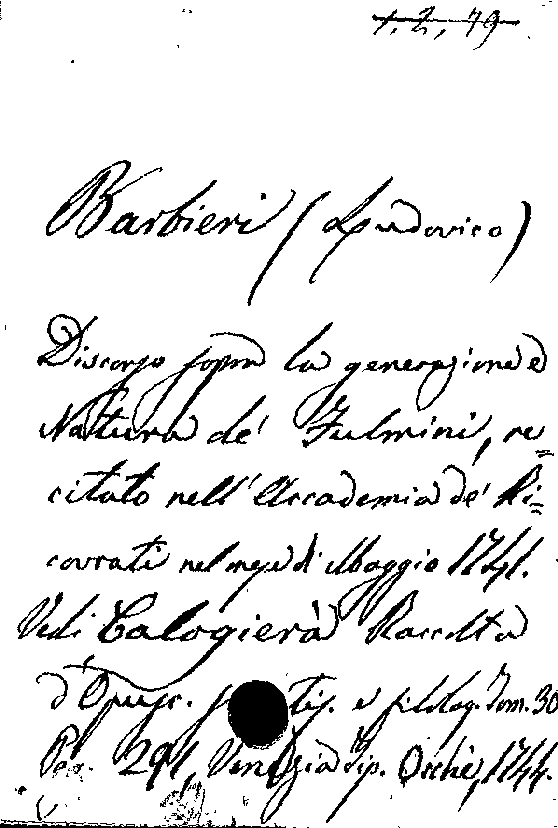 1. 2, 79
Barbieri (Ludovico)
Discorso sopra la generazione e
Natura de' Fulmini, re=
citato nell' Accademia de' Ri=
covrati nel mese di Maggio 1741.
Vedi Calogierà Raccolta
d'Opusc. e filolog. Tom. 30
Pag. 291, Venezia Tip. Occhi, 1744.